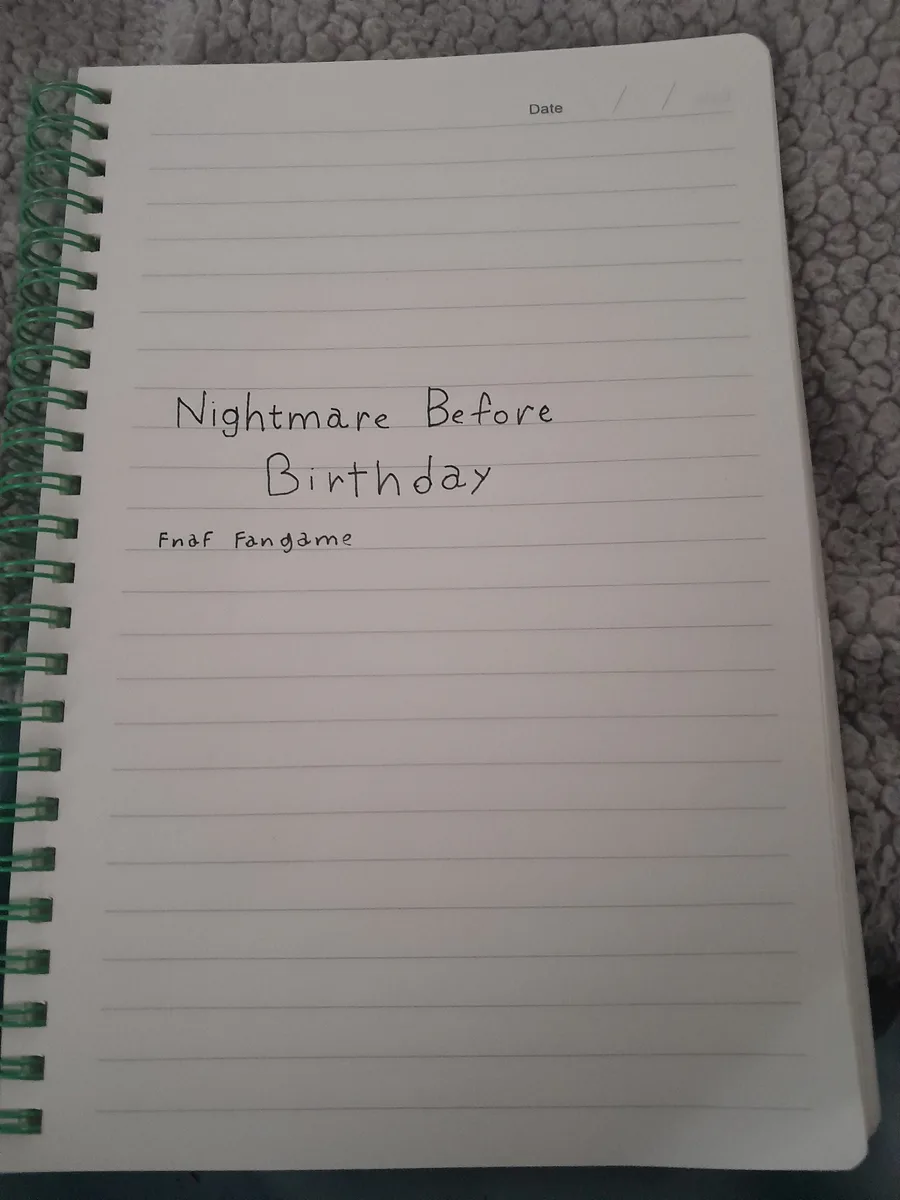 Date / /
Nightmare Before
Birthday
Fnaf Fangame